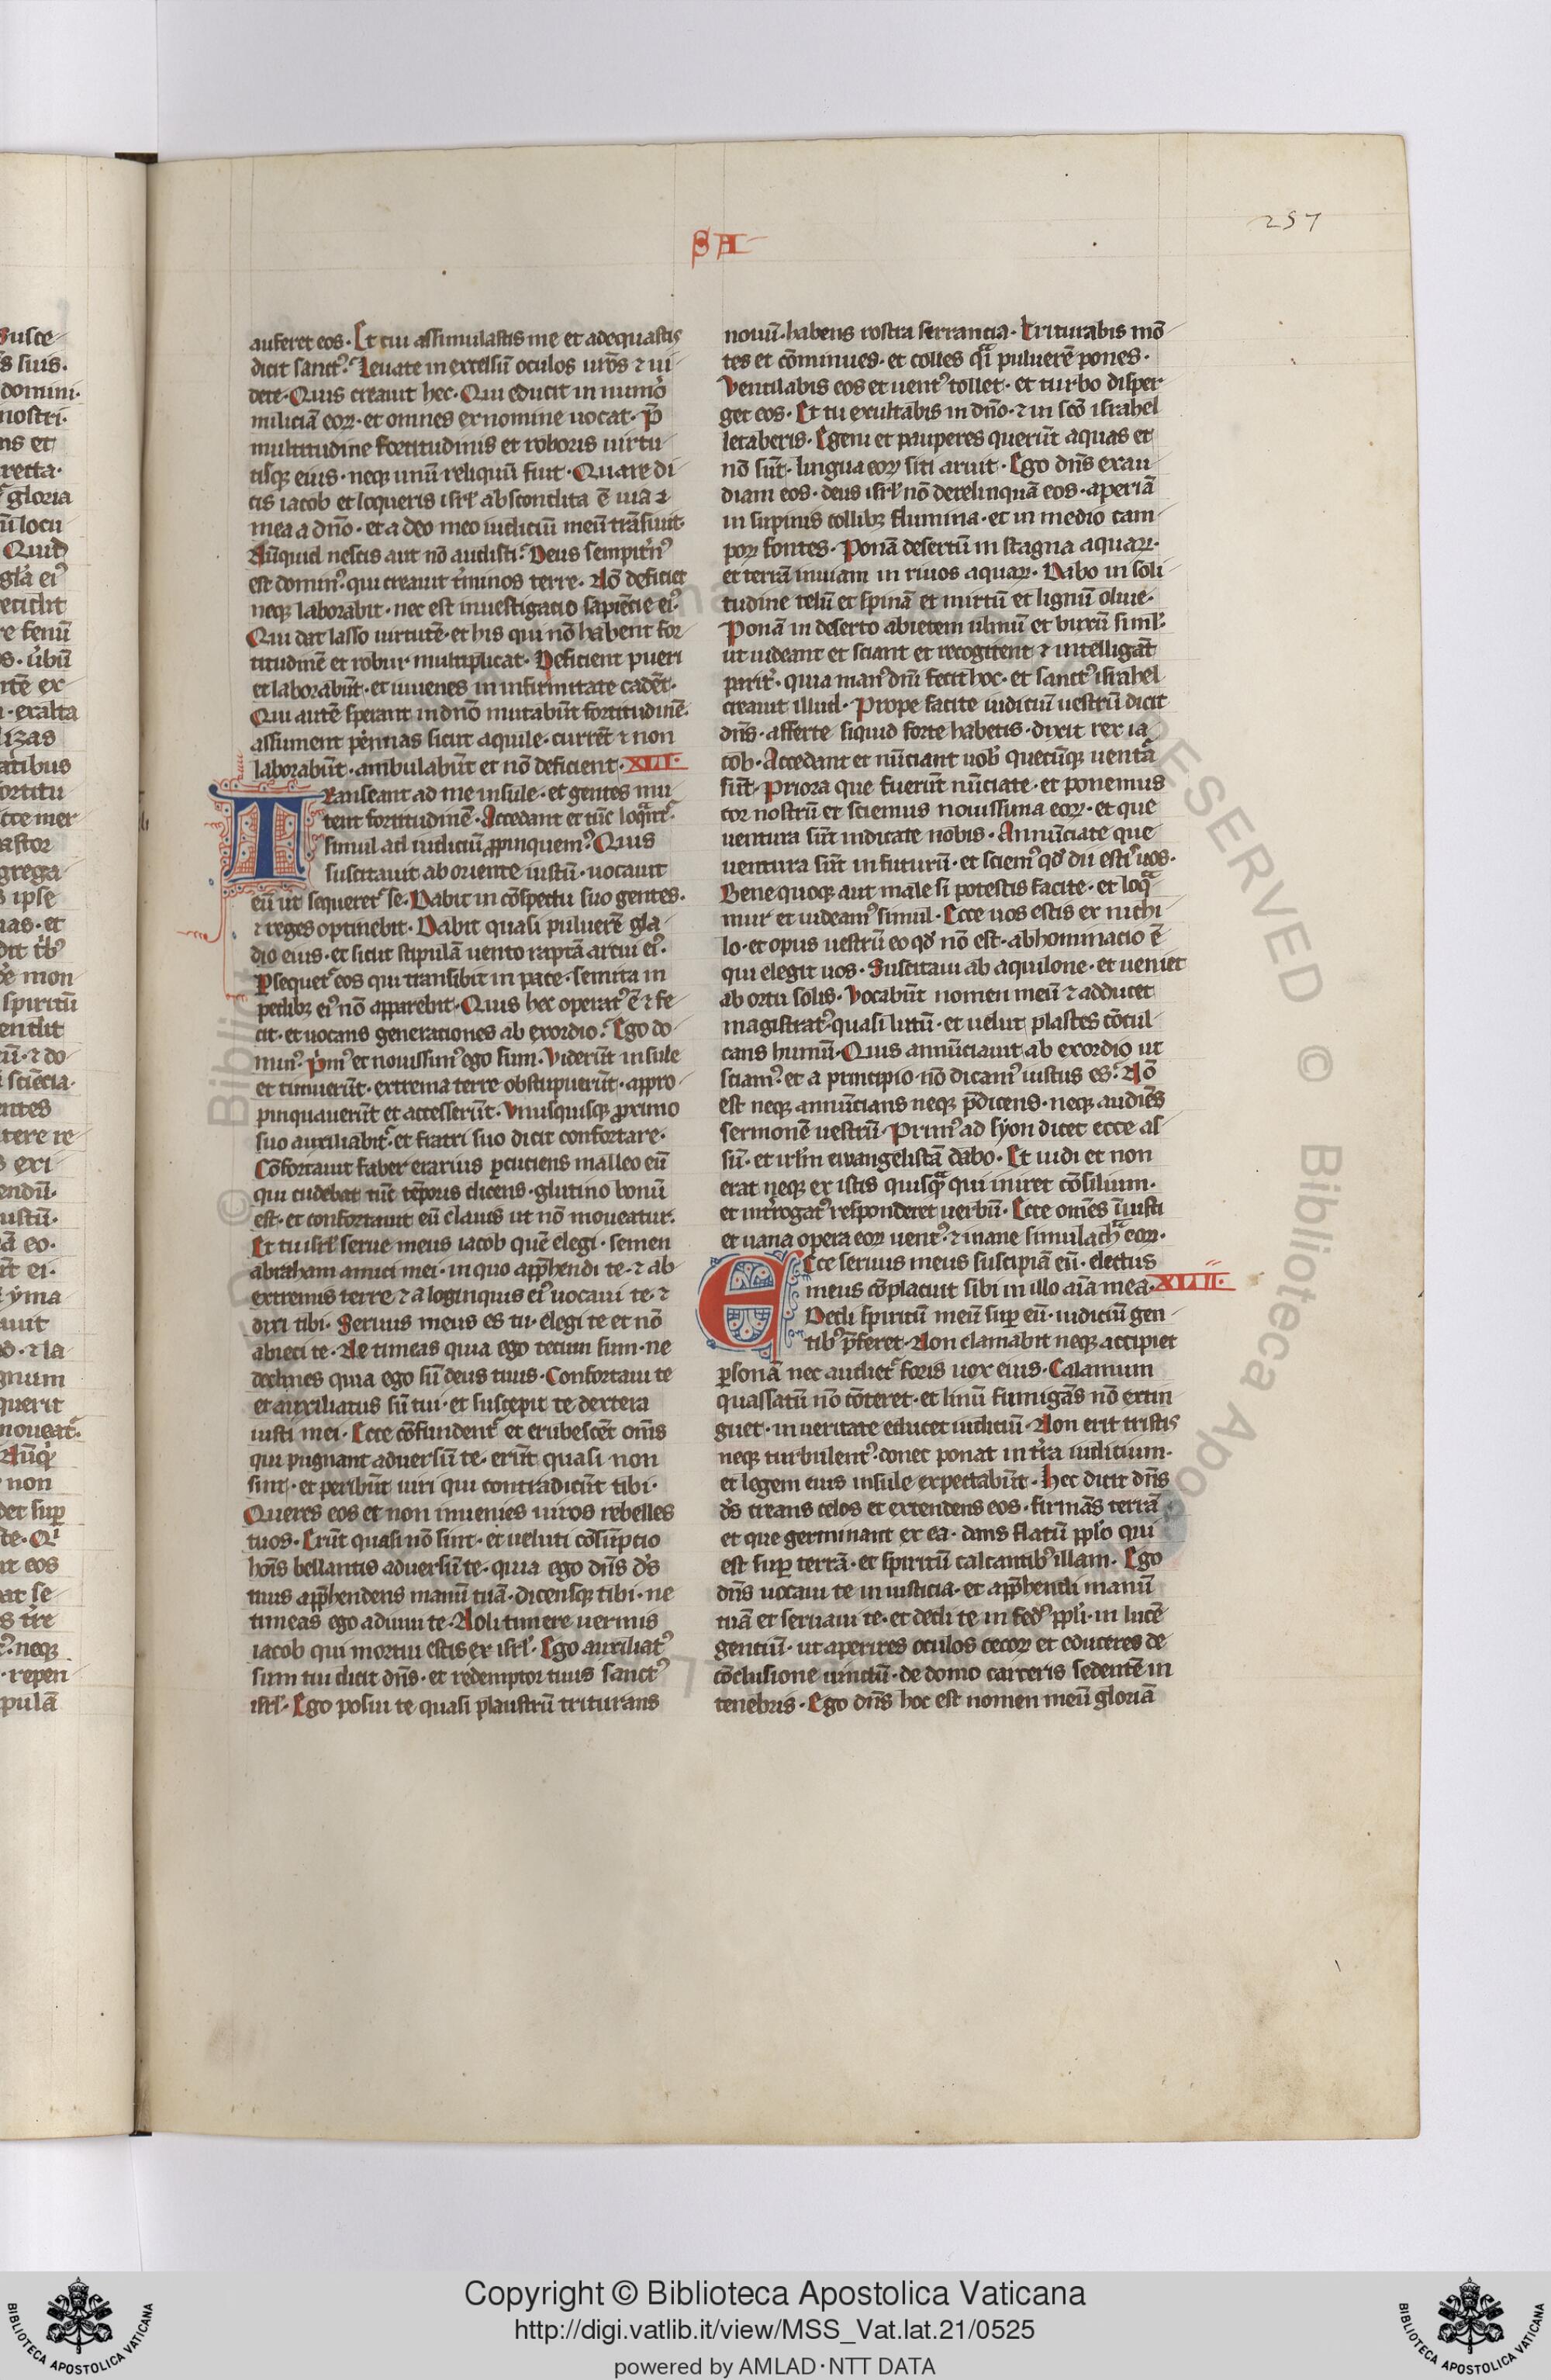 257
SA
auferet eos. Et cui assimulastis me et adequastis
dicit sanctꝰ. Leuate in excelsū oculos ur̄os ⁊ ui
dete. Quis creauit hec. Qui educit in numo
miliciā eoꝝ. et omnes ex nomine uocat. p̄
multitudine fortitudinis et roboris uirtu
tisqꝫ eius. neqꝫ unū reliquū fuit. Quare di
cis iacob et loqueris isrl̓ abscondita ē uia
mea a dn̄o. et a deo meo iudiciū meū trāsiuit.
Nūquid nescis aut nō audisti. Deus sempit̓nꝰ
est dominꝰ. qui creauit t̓minos terre. Nō deficiet
neqꝫ laborabit. nec est inuestigacio sapiēcie eiꝰ.
Qui dat lasso uirtutē. et his qui nō habent for
titudinē et robur multiplicat. Deficient pueri
et laborabūt. et iuuenes in infirmitate cadēt.
Qui autē sperant in dn̄o mutabūt fortitudinē.
assument pennas sicut aquile. currēt ⁊ non
laborabūt. ambulabūt et nō deficient. XLI.
Transeant ad me insule. et gentes mu
tent fortitudinē. Accedant et tūc loqᵃnt᷑.
simul ad iudiciū ꝓpinquemꝰ. Quis
suscitauit ab oriente iustū. uocauit
eū ut sequeret᷑ se. Dabit in cōspectu suo gentes.
⁊ reges optinebit. Dabit quasi puluerē gla
dio eius. et sicut stipulā uento raptā arcui eiꝰ.
Ꝑsequet᷑ eos qui transibit in pace. semita in
pedibꝫ eiꝰ nō apparebit. Quis hec operatꝰ ē ⁊ fe
cit. et uocans generaciones ab exordio. Ego do
minꝰ. p̓mꝰ et nouissimꝰ ego sum. Viderūt insule
et timuerūt. extrema terre obstupuerūt. appro
pinquauerūt et accesserūt. Vnusquisqꝫ ꝓximo
suo auxiliabit᷑. et fratri suo dicit confortare.
Cōfortauit faber erarius ꝑcuciens malleo eū
qui cudebat tūc tēporis dicens. glutino bonū
est. et confortauit eū clauis ut nō moueatur.
Et tu isrl̓ serue meus iacob quē elegi. semen
abraham amici mei. in quo app̄hendi te. ⁊ ab
extremis terre ⁊ a loginquis eiꝰ uocaui te. ⁊
dixi tibi. Seruus meus es tu. elegi te et nō
abieci te. Ne timeas quia ego tecum sum. ne
declines quia ego sū deus tuus. Confortaui te
et auxiliatus sū tui. et suscepit te dextera
iusti mei. Ecce cōfundent᷑ et erubescēt om̄s
qui pugnant aduersū te. erūt quasi non
sint. et peribūt uiri qui contradicūt tibi.
Queres eos et non inuenies uiros rebelles
tuos. Erūt quasi nō sint. et ueluti cōsūpcio
hoīs bellantis aduersū te. quia ego dn̄s ds̄
tuus app̄hendens manū tuā. dicensqꝫ tibi. ne
timeas ego adiuui te. Noli timere uermis
iacob qui mortui estis ex isrl̓. Ego auxiliatꝰ
sum tui dicit dn̄s. et redemptor tuus sanctꝰ
isrl̓. Ego posui te quasi plaustrū triturans
nouū. habens rostra serrancia. Triturabis mō
tes et cōminues. et colles qᵃi puluerē pones.
Ventilabis eos et uentꝰ tollet. et turbo disper
get eos. Et tu exultabis in dn̄o. ⁊ in sc̄o israhel
letaberis. Egeni et pauperes querūt aquas et
nō sūt. lingua eoꝝ siti aruit. Ego dn̄s exau
diam eos. deus isrl̓ nō derelinquā eos. aperiā
in supinis collibꝫ flumina. et in medio cam
poꝝ fontes. Ponā desertū in stagna aquaꝝ.
et terrā inuiam in riuos aquaꝝ. Dabo in soli
tudine cedrū et spinā et mirtū et lignū oliue.
Ponā in deserto abietem ulmū et buxū siml̓.
ut uideant et sciant et recogitent ⁊ intelligāt
parit̓. quia manꝰ dn̄i fecit hoc. et sanctꝰ israhel
creauit illud. Prope facite iudiciū uestrū dicit
dn̄s. afferte siquid forte habetis. dixit rex ia
cob. Accedant et nūciant uob̓ quecūqꝫ uentᵃ
sūt. Priora que fuerūt nūciate. et ponemus
cor nostrū et sciemus nouissima eoꝝ. et que
uentura sūt indicate nobis. Annūciate que
uentura sūt in futurū. et sciemꝰ qd̓ dii estis uos.
Bene quoqꝫ aut male si potestis facite. et loqᵃ
mur et uideamꝰ simul. Ecce uos estis ex nichi
lo. et opus uestrū eo qd̓ nō est. abhominacio ē
qui elegit uos. Suscitaui ab aquilone. et ueniet
ab ortu solis. Vocabūt nomen meū ⁊ adducet
magistratꝰ quasi lutū. et uelut plastes cōcul
cans humū. Quis annūciauit ab exordio ut
sciamꝰ. et a principio. nō dicamꝰ iustus es. Nō
est neqꝫ annūcians neqꝫ p̄dicens. neqꝫ audiēs
sermonē uestrū. Primꝰ ad syon dicet ecce as
sū. et irl̄m ewangelistā dabo. Et uidi et non
erat neqꝫ ex istis quisqᵃ qui iniret cōsilium.
et int̓rogatꝰ responderet uerbū. Ecce omēs īiusti
et uana opera eoꝝ uentꝰ. ⁊ inane simulachᵃ eoꝝ.
Ecce seruus meus suscipiā eū. electus
meus cōplacuit sibi in illo aīa mea. XLII.
Dedi spiritū meū suꝑ eū. iudiciū gen
tibꝰ p̄feret. Non clamabit neqꝫ accipiet
ꝑsonā nec audiet᷑ foris uox eius. Calamum
quassatū nō cōteret. et linū fumigās nō extin
guet. in ueritate educet iudiciū. Non erit tristis
neqꝫ turbulentꝰ. donec ponat in t̓ra iudicium.
et legem eius insule expectabūt. Hec dicit dn̄s
ds̄ creans celos et extendens eos. firmās terrā
et que germinant ex ea. dans flatū ppl̓o qui
est suꝑ terrā. et spiritū calcantibꝰ illam. Ego
dn̄s uocaui te in iusticia. et app̄hendi manū
tuā et seruaui te. et dedi te in fedꝰ ppl̓i. in lucē
gentiū. ut aperires oculos cecoꝝ et educeres de
cōclusione uinctū. de domo carceris sedentē in
tenebris. Ego dn̄s hoc est nomen meū gloriā
Copyright © Biblioteca Apostolica Vaticana
http://digi.vatlib.it/view/MSS_Vat.lat.21/0525
powered by AMLAD·NTT DATA
BIBLIOTECA APOSTOLICA VATICANA
BIBLIOTECA APOSTOLICA VATICANA